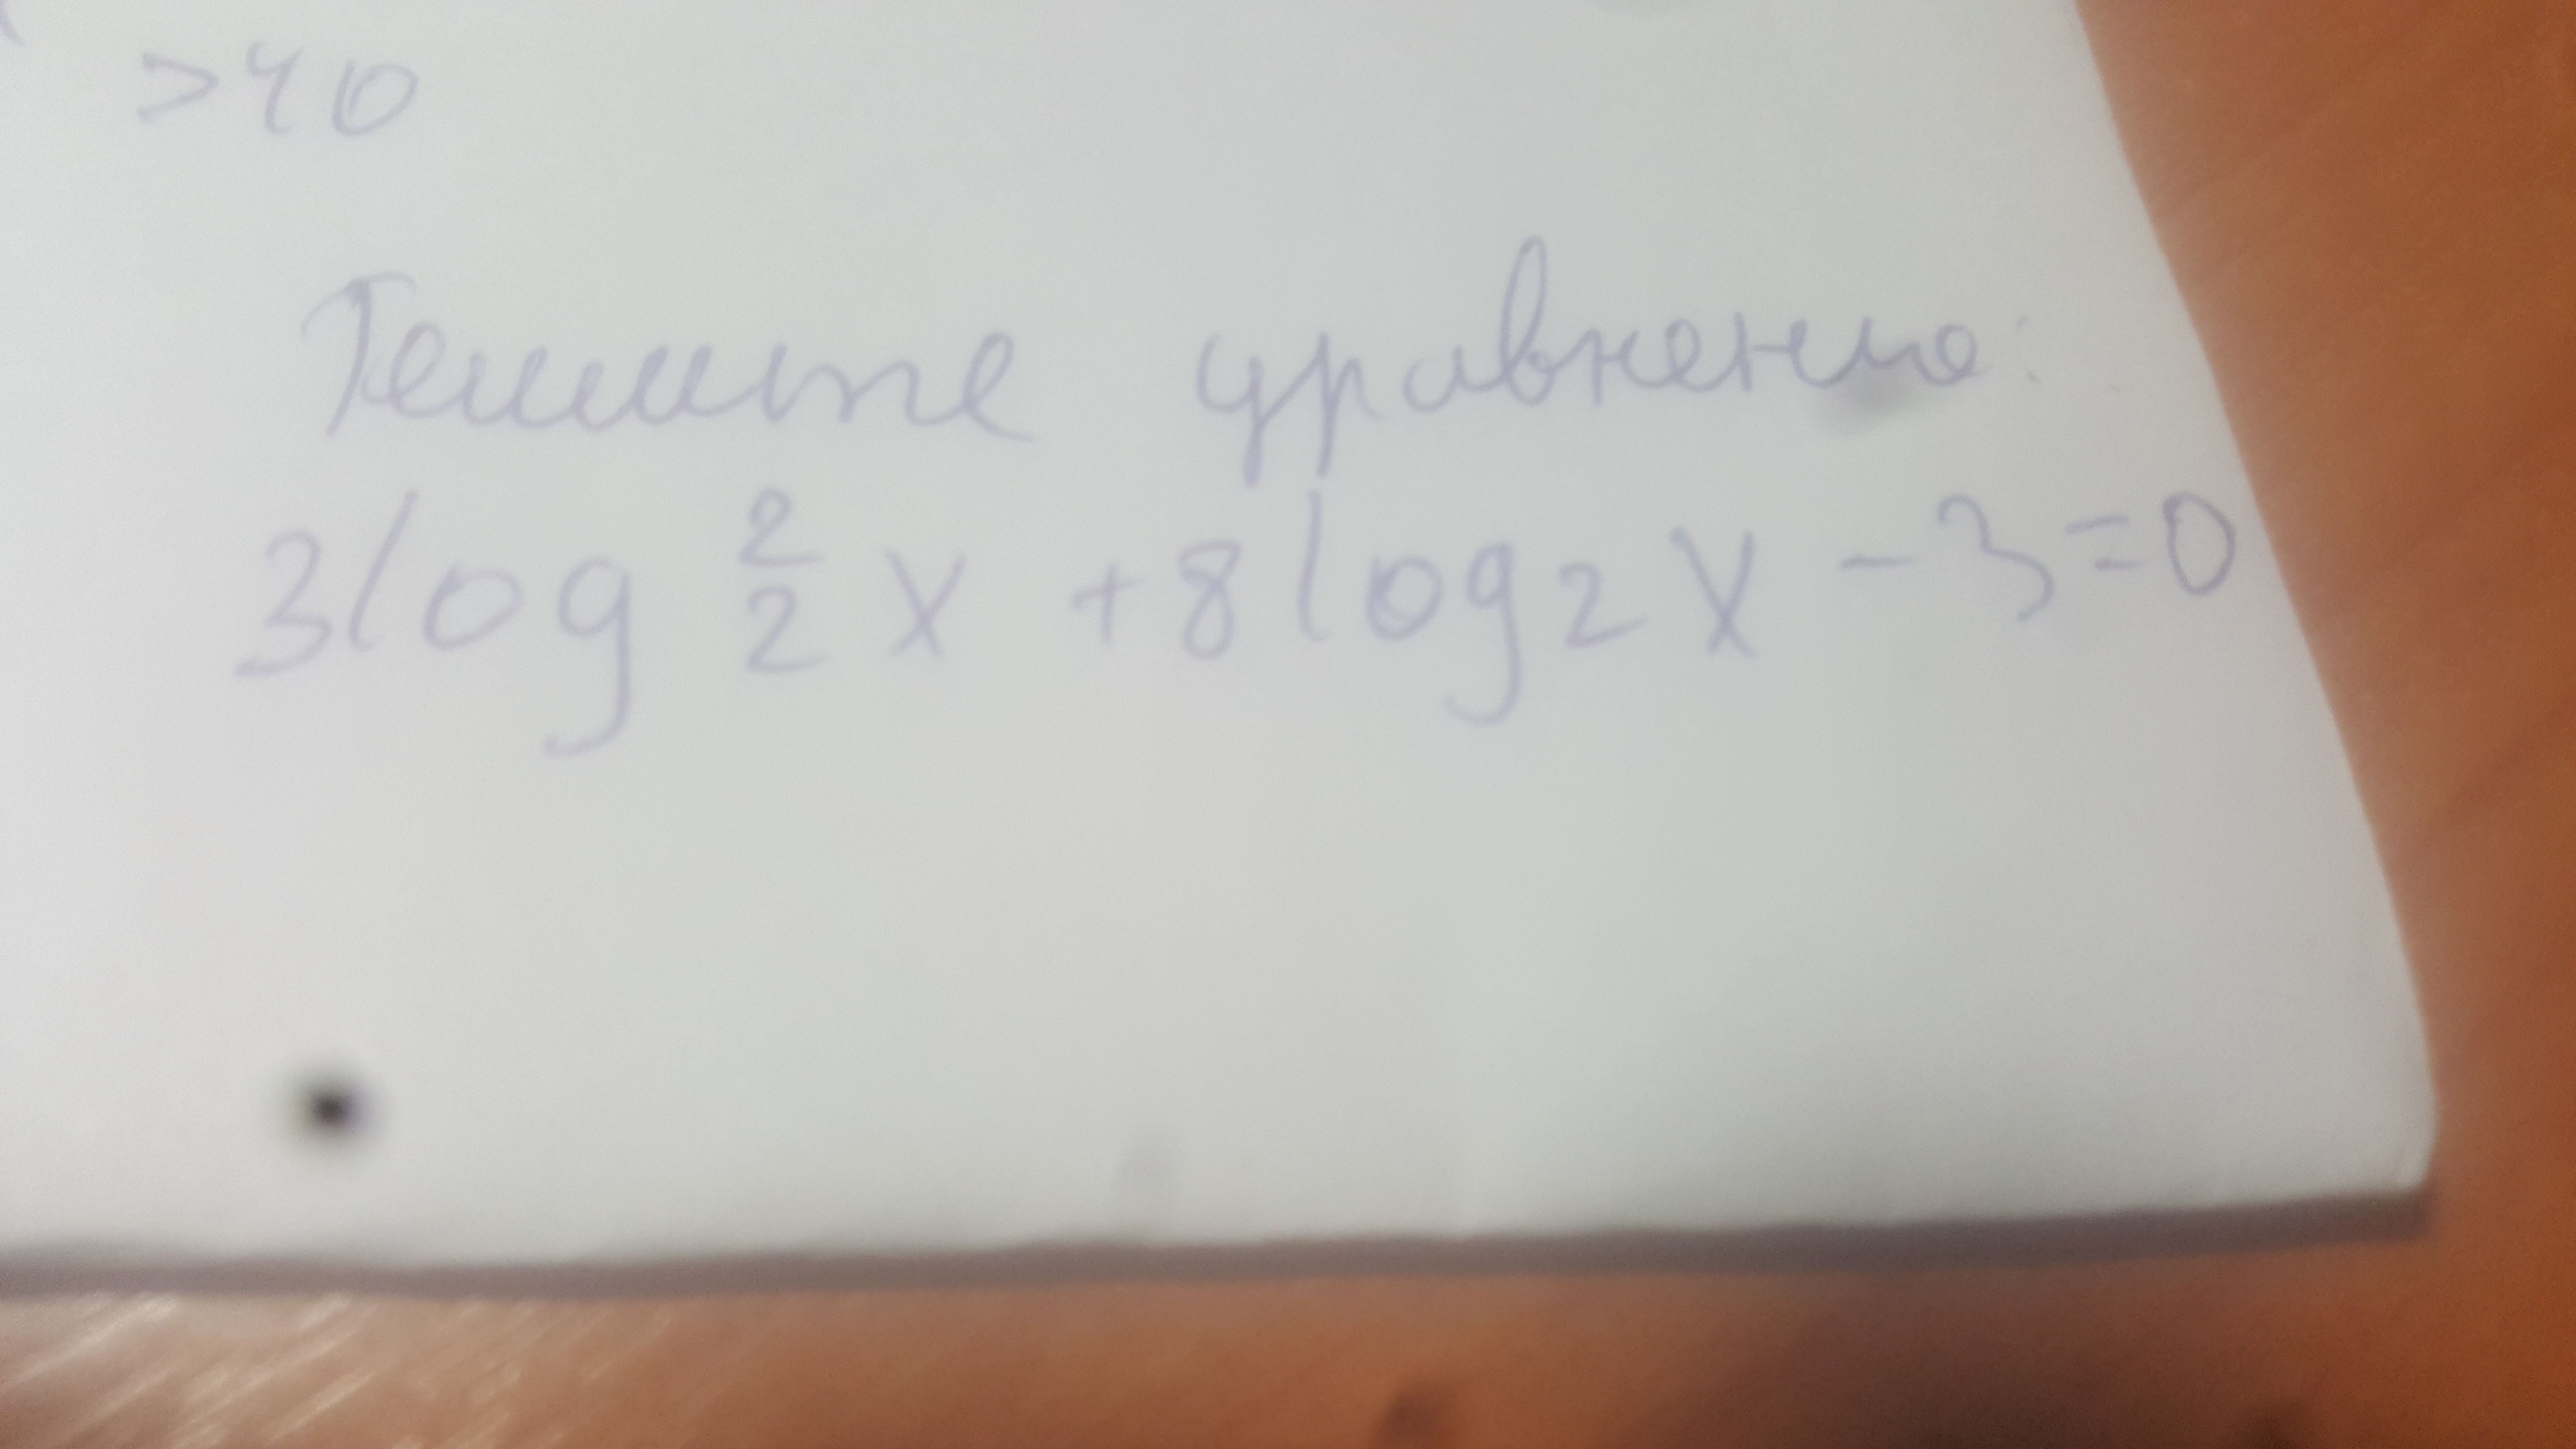 >40
Решите уравнение:
3log²₂x + 8log₂x - 3=0